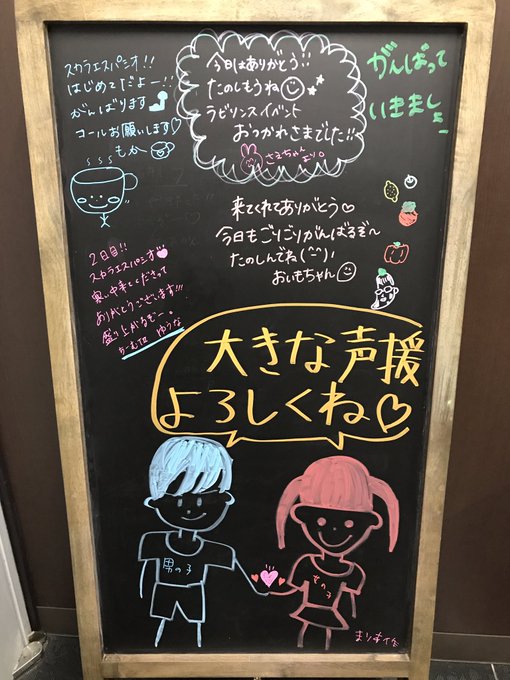 スカラエスパシオ!!
はじめてだよー!!
がんばります
コールお願いします♡
もか
今日はありがとう!!
たのしもうね
ラビリンスイベント
おつかれさまでした!!
さえちゃんより。
がんばって
いきましょー
来てくれてありがとう♡
今日もごりごりがんばるぞ~
たのしんでね(^-^)!
おいもちゃん
2日目!!
スカラエスパシオ!!
寒い中来てくださって
ありがとうございます!!!
盛り上がるぞー。
ちーむTⅡ ゆうな
大きな声援
よろしくね♡
男の子
女の子